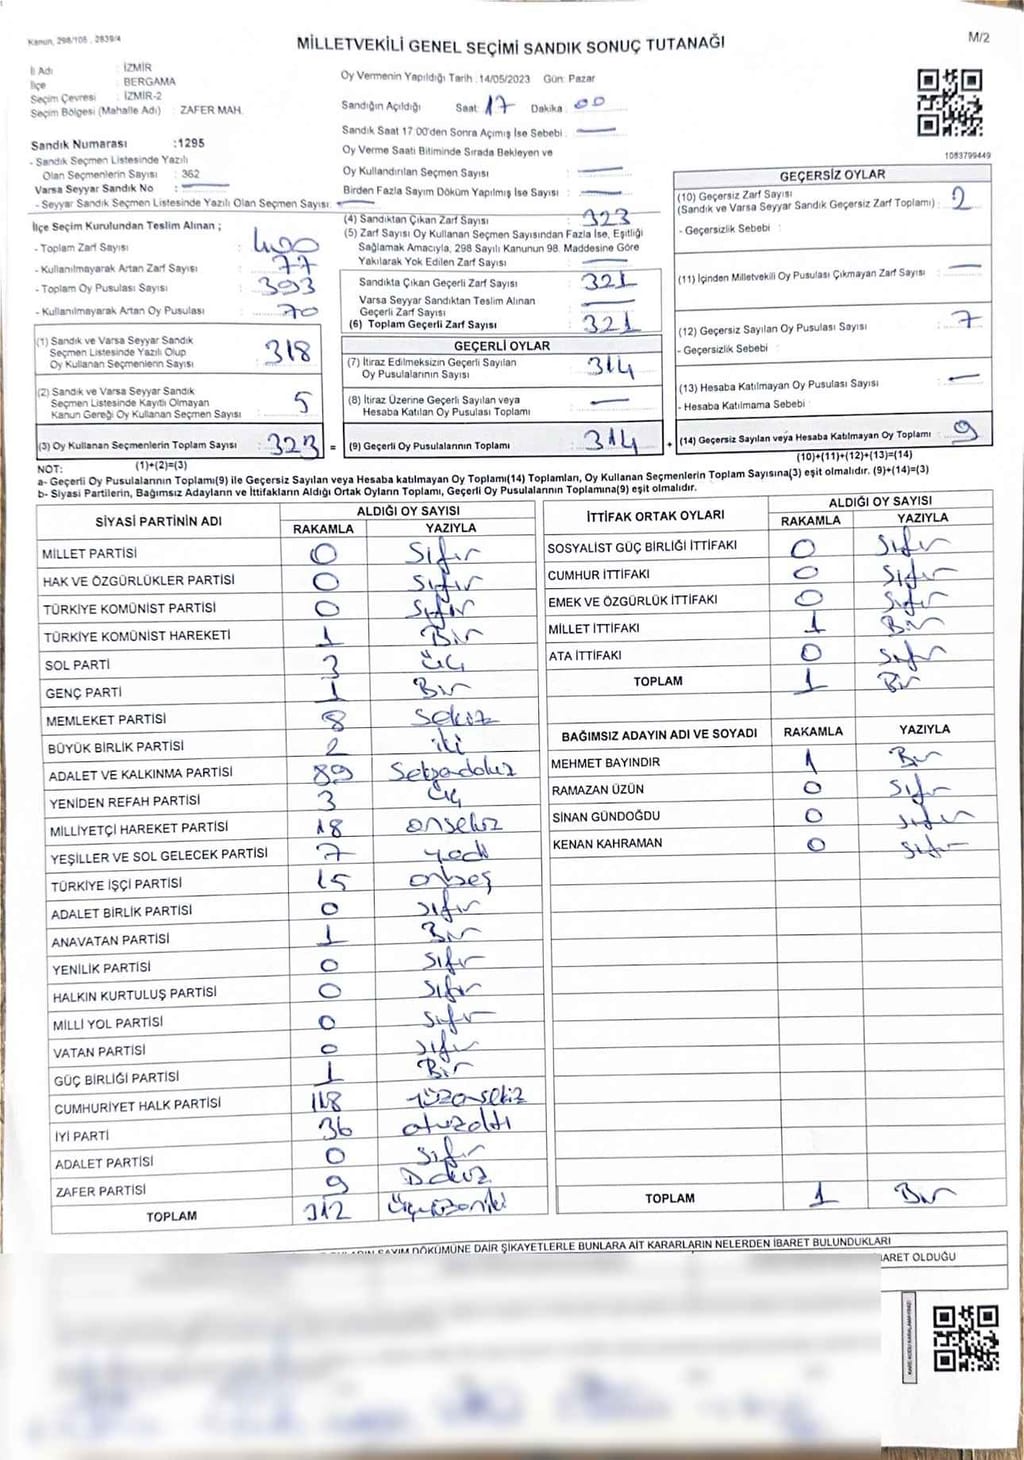 Kanun, 298/105, 2839/4
MİLLETVEKİLİ GENEL SEÇİMİ SANDIK SONUÇ TUTANAĞI
M/2
İl Adı : İZMİR
İlçe : BERGAMA
Seçim Çevresi : İZMİR-2
Seçim Bölgesi (Mahalle Adı) : ZAFER MAH.
Oy Vermenin Yapıldığı Tarih :14/05/2023 Gün: Pazar
Sandığın Açıldığı Saat: 17 Dakika : 00
Sandık Saat 17:00'den Sonra Açımış İse Sebebi : —
Oy Verme Saati Bitiminde Sırada Bekleyen ve
Oy Kullandırılan Seçmen Sayısı : —
Birden Fazla Sayım Döküm Yapılmış İse Sayısı : —
1083799449
Sandık Numarası :1295
- Sandık Seçmen Listesinde Yazılı
Olan Seçmenlerin Sayısı : 362
Varsa Seyyar Sandık No : —
- Seyyar Sandık Seçmen Listesinde Yazılı Olan Seçmen Sayısı: —
İlçe Seçim Kurulundan Teslim Alınan ;
- Toplam Zarf Sayısı : 400
- Kullanılmayarak Artan Zarf Sayısı : 77
- Toplam Oy Pusulası Sayısı : 393
- Kullanılmayarak Artan Oy Pusulası : 70
(1) Sandık ve Varsa Seyyar Sandık
Seçmen Listesinde Yazılı Olup
Oy Kullanan Seçmenlerin Sayısı : 318
(2) Sandık ve Varsa Seyyar Sandık
Seçmen Listesinde Kayıtlı Olmayan
Kanun Gereği Oy Kullanan Seçmen Sayısı : 5
(3) Oy Kullanan Seçmenlerin Toplam Sayısı : 323
(1)+(2)=(3)
(4) Sandıktan Çıkan Zarf Sayısı : 323
(5) Zarf Sayısı Oy Kullanan Seçmen Sayısından Fazla İse, Eşitliği
Sağlamak Amacıyla, 298 Sayılı Kanunun 98. Maddesine Göre
Yakılarak Yok Edilen Zarf Sayısı : —
Sandıkta Çıkan Geçerli Zarf Sayısı : 321
Varsa Seyyar Sandıktan Teslim Alınan
Geçerli Zarf Sayısı : —
(6) Toplam Geçerli Zarf Sayısı : 321
GEÇERLİ OYLAR
(7) İtiraz Edilmeksizin Geçerli Sayılan
Oy Pusulalarının Sayısı : 314
(8) İtiraz Üzerine Geçerli Sayılan veya
Hesaba Katılan Oy Pusulası Toplamı : —
= (9) Geçerli Oy Pusulalarının Toplamı : 314
GEÇERSİZ OYLAR
(10) Geçersiz Zarf Sayısı
(Sandık ve Varsa Seyyar Sandık Geçersiz Zarf Toplamı) : 2
- Geçersizlik Sebebi :
(11) İçinden Milletvekili Oy Pusulası Çıkmayan Zarf Sayısı : —
(12) Geçersiz Sayılan Oy Pusulası Sayısı : 7
- Geçersizlik Sebebi :
(13) Hesaba Katılmayan Oy Pusulası Sayısı : —
- Hesaba Katılmama Sebebi :
+ (14) Geçersiz Sayılan veya Hesaba Katılmayan Oy Toplamı : 9
(10)+(11)+(12)+(13)=(14)
NOT:
a- Geçerli Oy Pusulalarının Toplamı(9) ile Geçersiz Sayılan veya Hesaba katılmayan Oy Toplamı(14) Toplamları, Oy Kullanan Seçmenlerin Toplam Sayısına(3) eşit olmalıdır. (9)+(14)=(3)
b- Siyasi Partilerin, Bağımsız Adayların ve İttifakların Aldığı Ortak Oyların Toplamı, Geçerli Oy Pusulalarının Toplamına(9) eşit olmalıdır.
SİYASİ PARTİNİN ADI ALDIĞI OY SAYISI
RAKAMLA YAZIYLA
MİLLET PARTİSİ 0 Sıfır
HAK VE ÖZGÜRLÜKLER PARTİSİ 0 Sıfır
TÜRKİYE KOMÜNİST PARTİSİ 0 Sıfır
TÜRKİYE KOMÜNİST HAREKETİ 1 Bir
SOL PARTİ 3 Üç
GENÇ PARTİ 1 Bir
MEMLEKET PARTİSİ 8 sekiz
BÜYÜK BİRLİK PARTİSİ 2 iki
ADALET VE KALKINMA PARTİSİ 89 Seksendokuz
YENİDEN REFAH PARTİSİ 3 Üç
MİLLİYETÇİ HAREKET PARTİSİ 18 onsekiz
YEŞİLLER VE SOL GELECEK PARTİSİ 7 yedi
TÜRKİYE İŞÇİ PARTİSİ 15 onbeş
ADALET BİRLİK PARTİSİ 0 sıfır
ANAVATAN PARTİSİ 1 Bir
YENİLİK PARTİSİ 0 sıfır
HALKIN KURTULUŞ PARTİSİ 0 sıfır
MİLLİ YOL PARTİSİ 0 sıfır
VATAN PARTİSİ 0 sıfır
GÜÇ BİRLİĞİ PARTİSİ 1 Bir
CUMHURİYET HALK PARTİSİ 118 yüzonsekiz
İYİ PARTİ 36 otuzaltı
ADALET PARTİSİ 0 sıfır
ZAFER PARTİSİ 9 Dokuz
TOPLAM 312 Üçyüzoniki
İTTİFAK ORTAK OYLARI ALDIĞI OY SAYISI
RAKAMLA YAZIYLA
SOSYALİST GÜÇ BİRLİĞİ İTTİFAKI 0 Sıfır
CUMHUR İTTİFAKI 0 Sıfır
EMEK VE ÖZGÜRLÜK İTTİFAKI 0 Sıfır
MİLLET İTTİFAKI 1 Bir
ATA İTTİFAKI 0 Sıfır
TOPLAM 1 Bir
BAĞIMSIZ ADAYIN ADI VE SOYADI RAKAMLA YAZIYLA
MEHMET BAYINDIR 1 Bir
RAMAZAN ÜZÜN 0 sıfır
SİNAN GÜNDOĞDU 0 sıfır
KENAN KAHRAMAN 0 sıfır
TOPLAM 1 Bir
SAYIM DÖKÜMÜNE DAİR ŞİKAYETLERLE BUNLARA AİT KARARLARIN NELERDEN İBARET BULUNDUKLARI
OLDUĞU